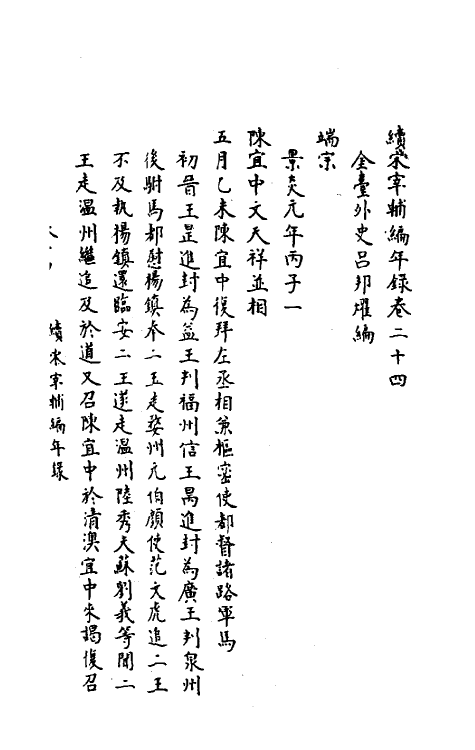 續宋宰輔編年録卷二十四
全臺外史呂邦燿編
端宗
景炎元年丙子一
陳宜中文天祥並相
五月乙未陳宜中復拜左丞相兼樞密使都督諸路軍馬
初晉王昰進封為益王判福州信王昺進封為廣王判泉州
後駙馬都慰楊鎮奉二王走婺州元伯顔使范文虎追二王
不及執楊鎮還臨安二王遂走温州陸秀夫蘇劉義等聞二
王走温州繼追及於道又召陳宜中於清澳宜中來揭復召
續宋宰輔編年録